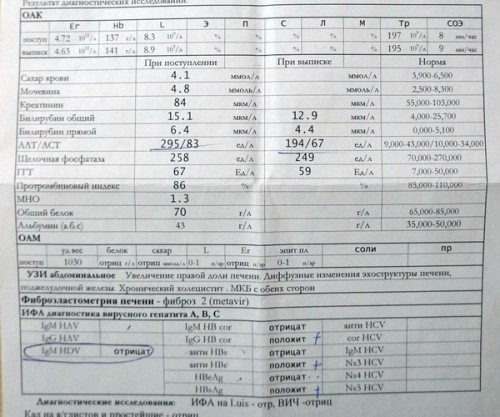 Результат диагностических исследований:
ОАК
Er Hb L Э П С Л М Тр СОЭ
поступ 4.72 10¹²/л 137 г/л 8.3 10⁹/л % % % % % 197 10⁹/л 8 мм/час
выписк 4.63 10¹²/л 141 г/л 8.9 10⁹/л % % % % % 195 10⁹/л 9 мм/час
При поступлении При выписке Норма
Сахар крови 4.1 ммол/л ммол/л 3,900-6,500
Мочевина 4.8 ммоль/л ммоль/л 2,500-8,300
Креатинин 84 мкм/л мкм/л 55,000-103,000
Билирубин общий 15.1 мкм/л 12.9 мкм/л 4,000-25,700
Билирубин прямой 6.4 мкм/л 4.4 мкм/л 0,000-5,100
АЛТ/АСТ 295/83 ед/л 194/67 ед/л 9,000-43,000/10,000-34,000
Щелочная фосфатаза 258 ед/л 249 ед/л 70,000-270,000
ГГТ 67 Ед/л 59 Ед/л 7,000-50,000
Протромбиновый индекс 86 % % 85,000-110,000
МНО 1.3
Общий белок 70 г/л г/л 65,000-85,000
Альбумин (а.б.с) 43 г/л г/л 35,000-50,000
ОАМ
уд вес белок сахар L Er эпит пл соли пр
поступ 1030 отриц г/л отриц ммоль/л 0-1 п/зр отриц п/зр 0-1 п/зр
УЗИ абдоминальное Увеличение правой доли печени. Диффузные изменения эхоструктуры печени,
поджелудочной железы. Хронический холецистит. МКБ с обеих сторон
Фиброэластометрия печени - фиброз 2 (metavir)
ИФА диагностика вирусного гепатита А, В, С
IgM HAV IgM HB cor отрицат анти HCV
IgG HAV IgG HB cor положит + cor HCV
IgM HDV отрицат анти HBs отрицат IgM HCV
анти HBe положит + Ns3 HCV
HBeAg отрицат Ns4 HCV
HBsAg положит + Ns5 HCV
Диагностические исследования: ИФА на Luis - отр, ВИЧ -отриц
Кал на я/глистов и простейшие - отриц